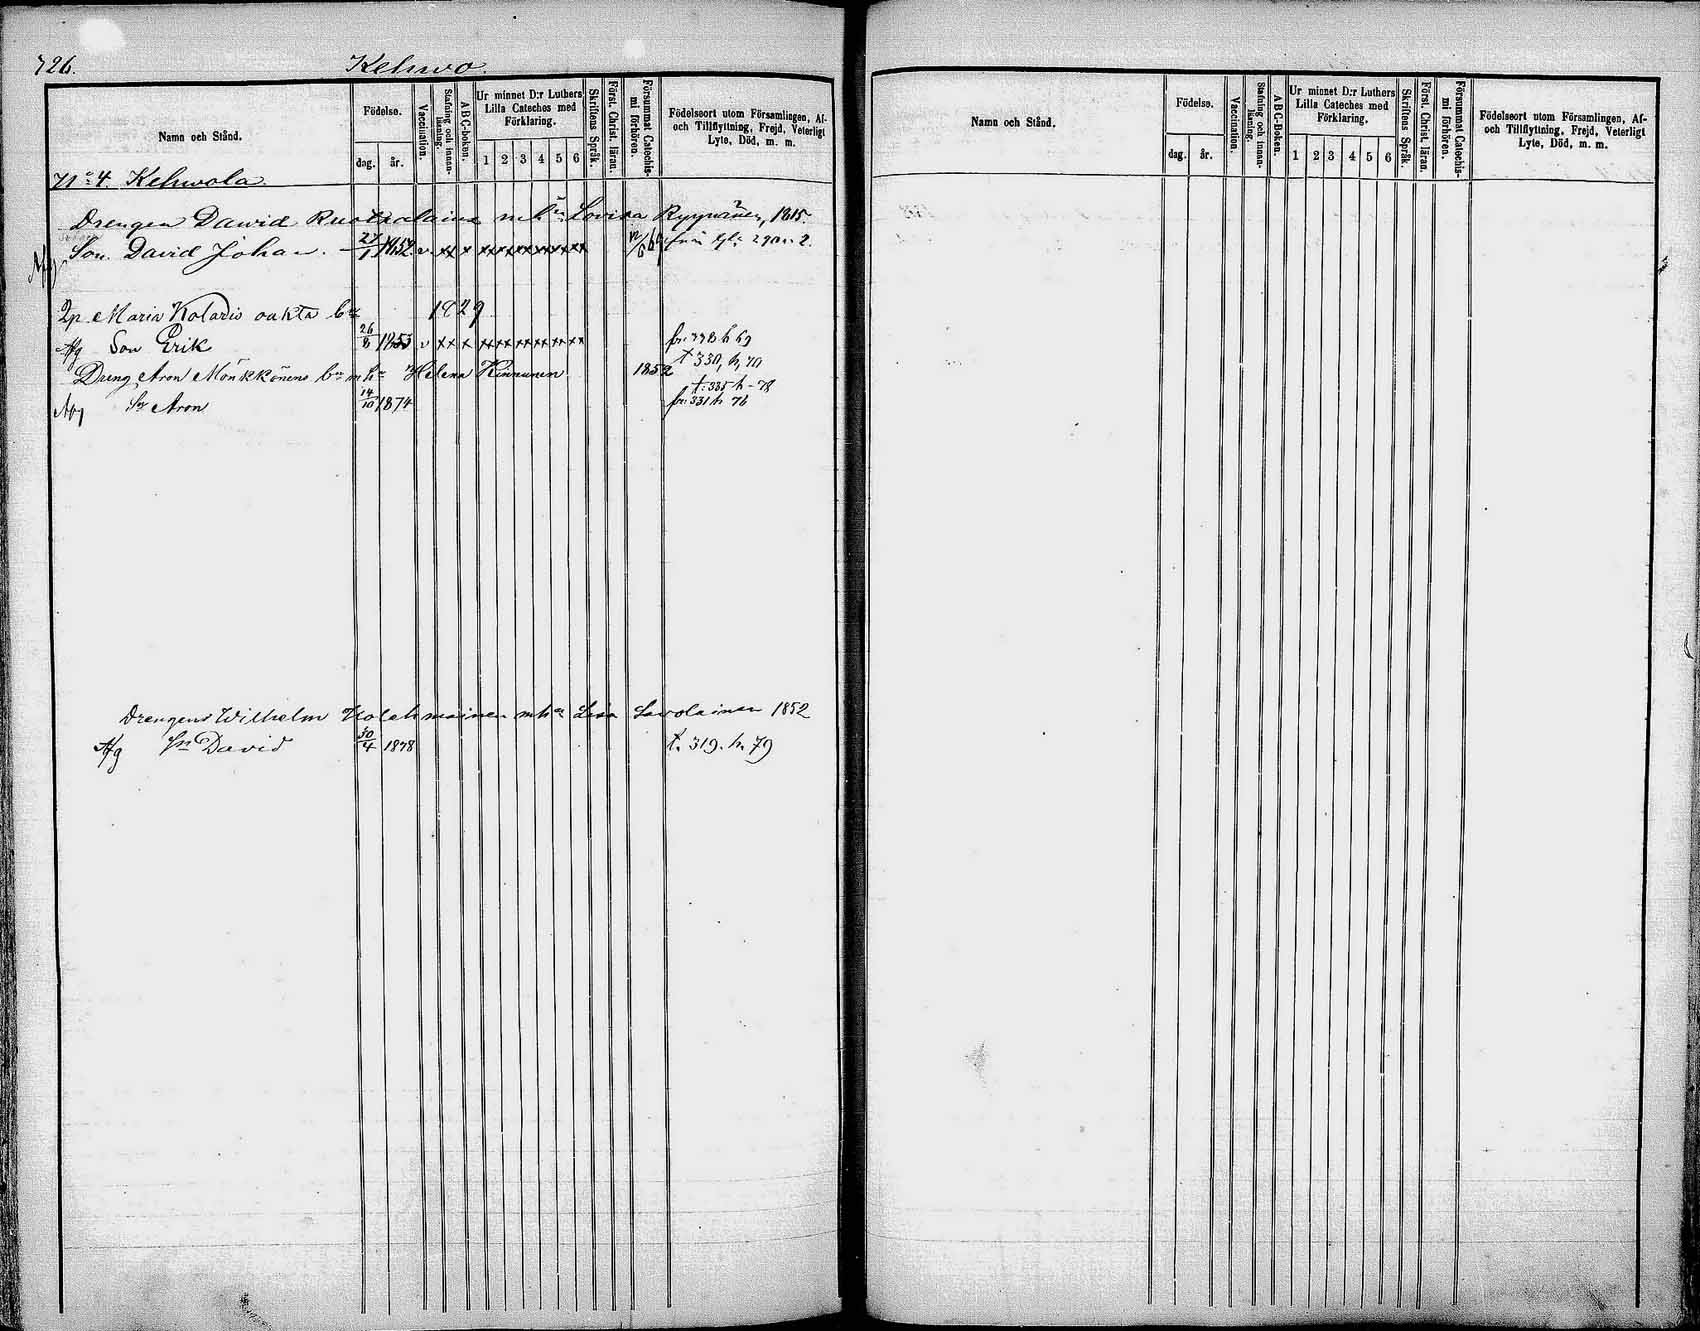 726.
Kehvo.
Namn och Stånd.
Födelse.
dag. år.
Vaccination.
Stafning och innan-läsning.
ABC-boken.
Ur minnet D:r Luthers Lilla Cateches med Förklaring.
1 2 3 4 5 6
Skriftens Språk.
Först. Christ. läran.
Försummat Catechis-mi förhören.
Födelseort utom Församlingen, Af- och Tillflyttning, Frejd, Veterligt Lyte, Död, m. m.
No 4. Kehvola.
Drengen Dawid Ruotsalains Lovisa Ryynänen, 1815.
Son David Johan. 27/1 1852 v. xx x
Maria 1829
Afg Son Erik 26/8 1853 v xx x fr. h 69
t 330, h, 70
Dreng Aron Mönkkönens Helena Kinnunen 1852
t. 335 h - 78
Afg Sn Aron 14/10 1874 fr. 331 h 76
Drengens Wilhelm Kolehmainen mhu Lisa Savolainen 1852
Afg Sn David 30/4 1878 t. 319. h. 79
Namn och Stånd.
Födelse.
dag. år.
Vaccination.
Stafning och innan-läsning.
ABC-Boken.
Ur minnet D:r Luthers Lilla Cateches med Förklaring.
1 2 3 4 5 6
Skriftens Språk.
Först. Christ. läran.
Försummat Catechis-mi förhören.
Födelseort utom Församlingen, Af- och Tillflyttning, Frejd, Veterligt Lyte, Död, m. m.